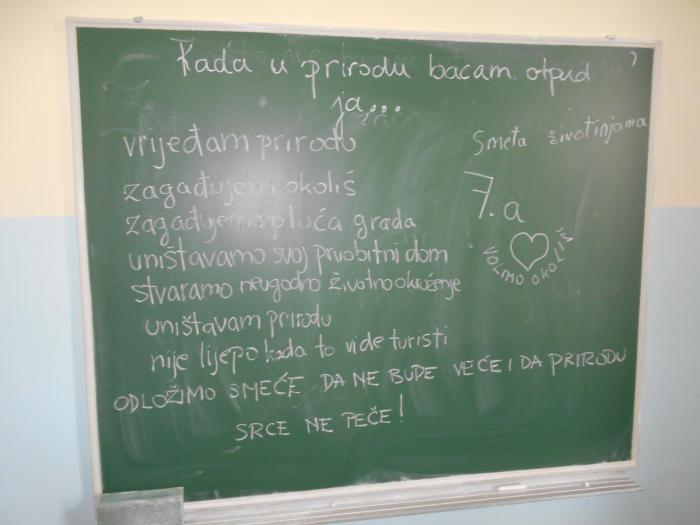 Kada u prirodu bacam otpad
ja...
vrijeđam prirodu
Smeta životinjama
zagađujem okoliš
zagađujemo pluća grada
7. a
uništavamo svoj prvobitni dom
VOLIMO OKOLIŠ
stvaramo neugodno životno okruženje
uništavam prirodu
nije lijepo kada to vide turisti
ODLOŽIMO SMEĆE DA NE BUDE VEĆE I DA PRIRODU
SRCE NE PEČE!